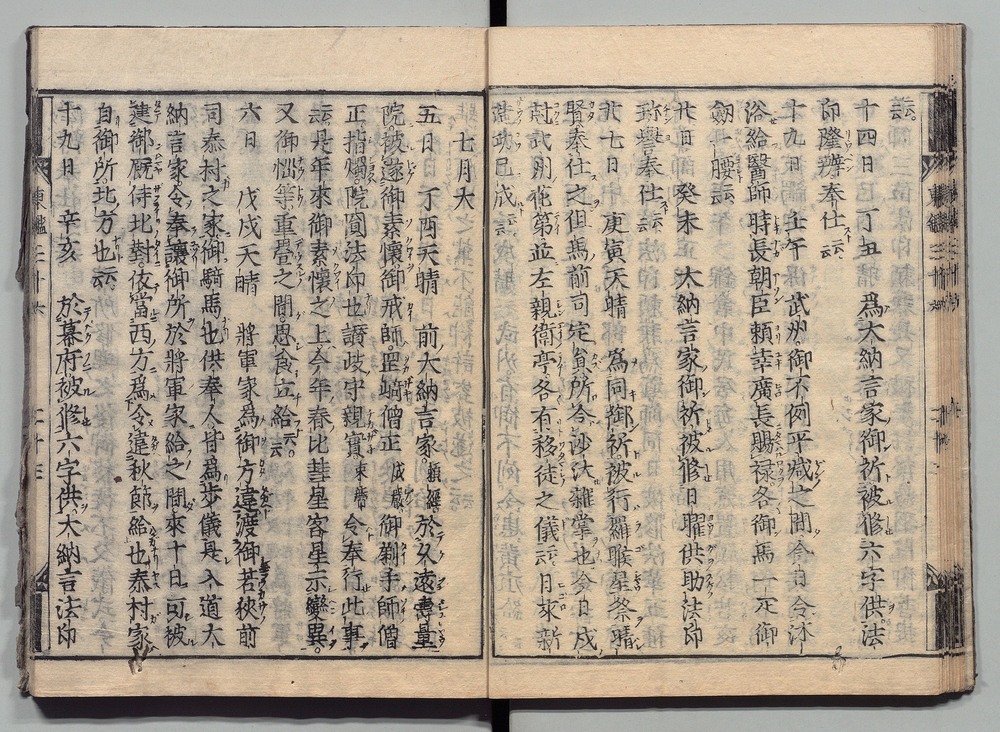 云云
十四日 丁丑 晴 爲大納言家御祈被修六字供法
印隆辨奉仕云云
十九日 壬午 武州御不例平減之間今日令沐
浴給醫師時長朝臣頼幸廣長賜禄各御馬一疋御
劔一腰云云
廿日 癸未 大納言家御祈被修日曜供助法印
珎譽奉仕云云
廿七日 庚寅天晴 爲同御祈被行羅睺星祭晴
賢奉仕之但馬前司定員所令沙汰雜掌也今日戌
尅武州花第並左親衛亭各有移徒之儀云云月來新
造功已成云云
七月大
五日 丁酉天晴 前大納言家頼經於久遠壽量
院被遂御素懷御戒師岡崎僧正成嚴御剃手師僧
正指燭院圓法印也讃岐守親實束帶令奉行此事
云云是年來御素懷之上今年春比彗星客星示變異
又御惱等重疊之間思食立給云云
六日 戊戌天晴 將軍家爲御方違渡御若狹前
司泰村之家御騎馬也供奉人皆爲歩儀是入道大
納言家令奉讓御所於將軍家給之間來十日可被
建御厩侍北對依當西方爲令違秋節給也泰村家
自御所北方也云云
十九日 辛亥 於幕府被修六字供大納言法印
東鑑三十六
二十三